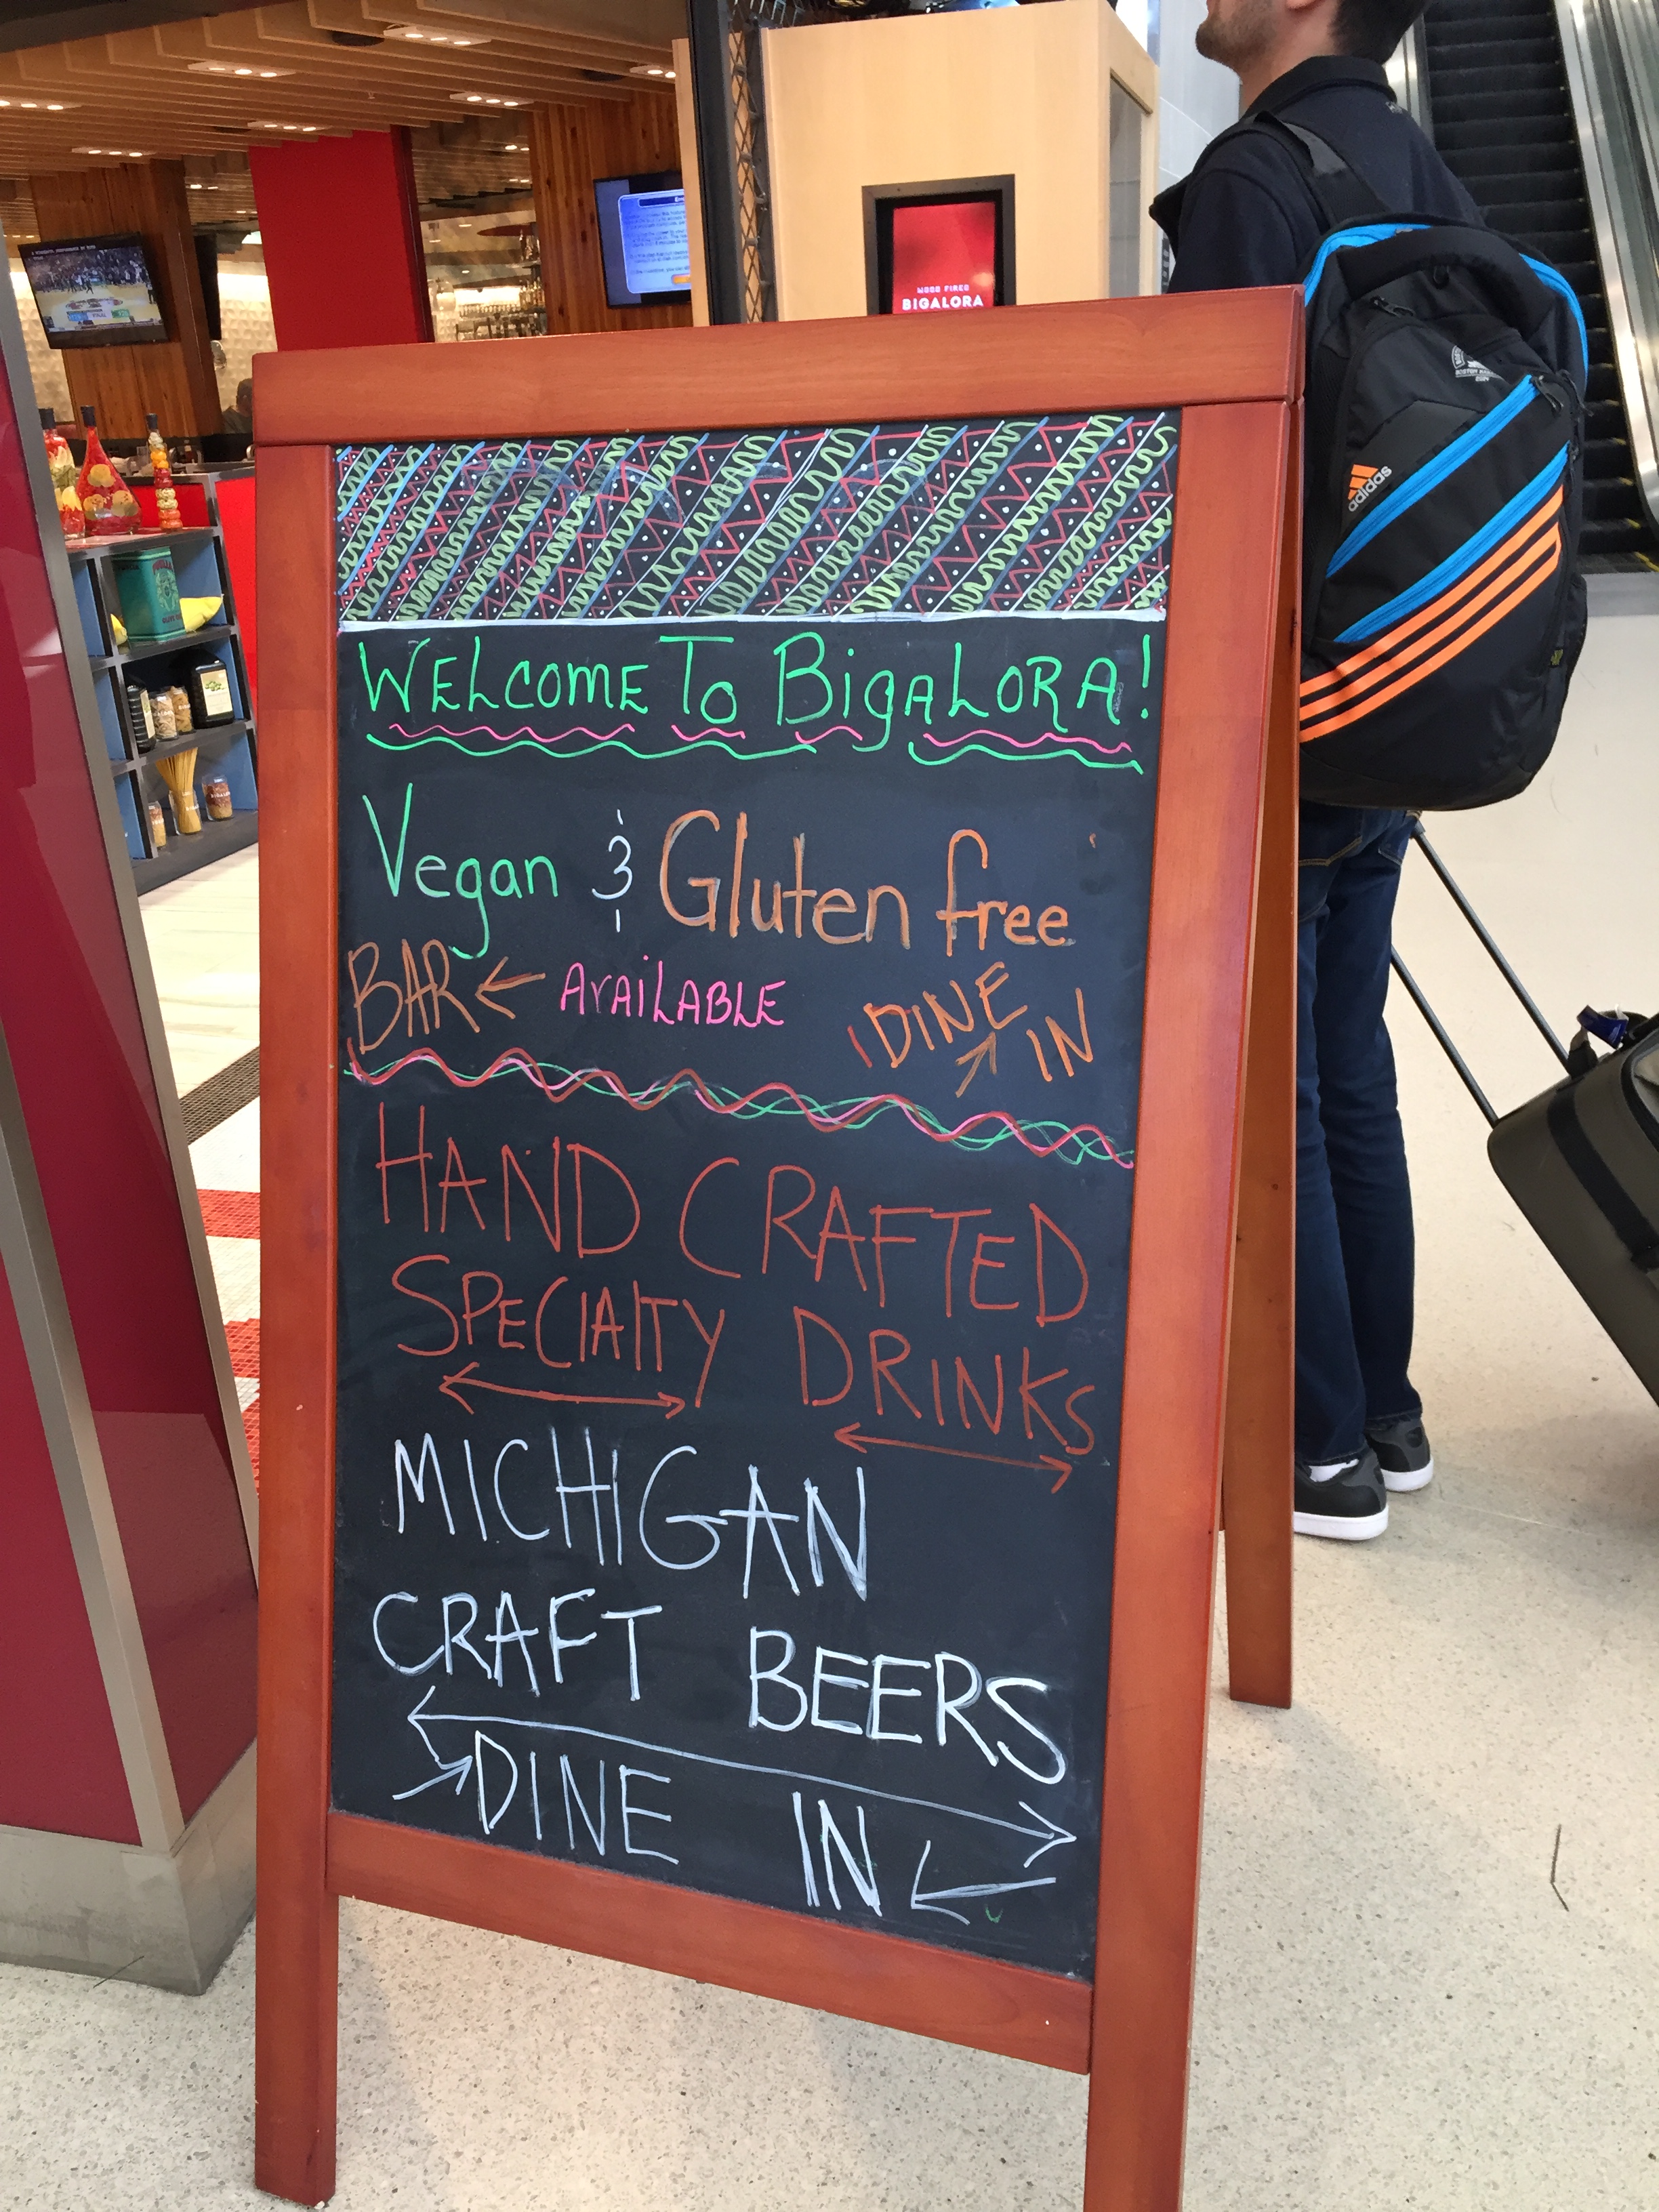 WOOD FIRED
BIGALORA
adidas
WELCOME TO BIgALORA!
Vegan & Gluten free
BAR ← AVAILABLE DINE IN
HAND CRAFTED
SPECIALTY DRINKS
MICHIGAN
CRAFT BEERS
DINE IN